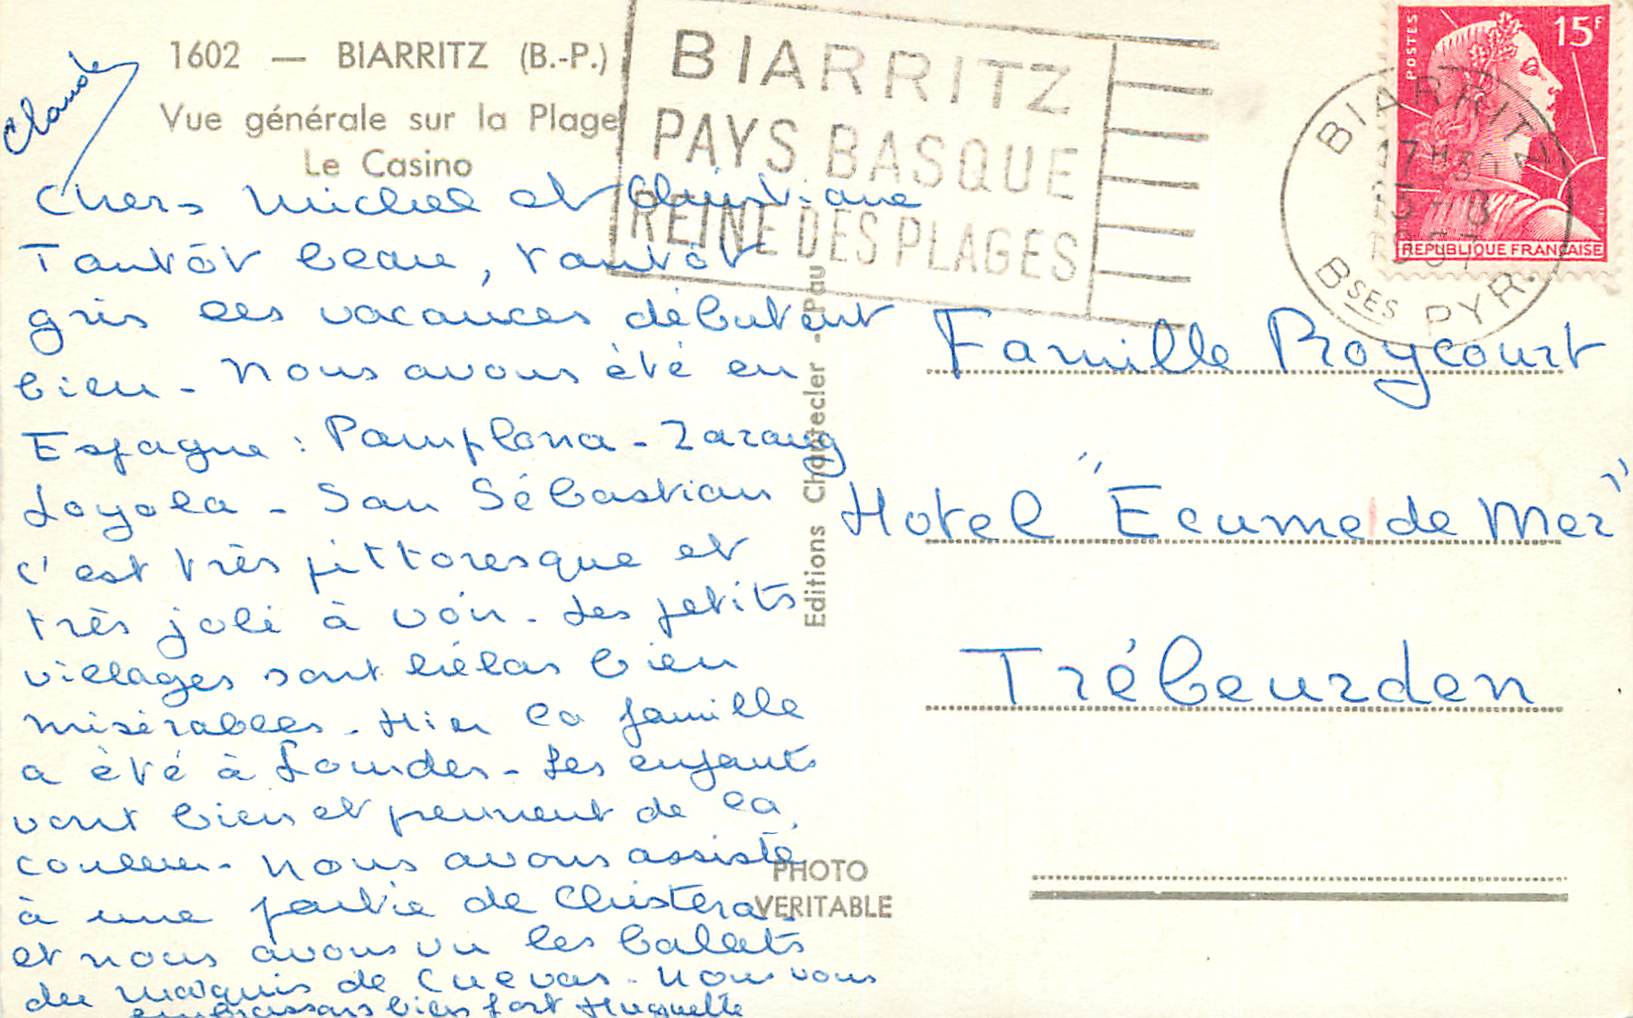 1602 — BIARRITZ (B.-P.)
Vue générale sur la Plage
Le Casino
Claude
BIARRITZ
PAYS BASQUE
REINE DES PLAGES
POSTES
15F
REPUBLIQUE FRANÇAISE
BIARRITZ
17H30
1957
BSES PYR.
Chers Michel et Christiane
Tantôt beau, tantôt
gris les vacances débutent
bien - Nous avons été en
Espagne : Pamplona - Zaraug
Loyola - San Sébastian
c'est très pittoresque et
très joli à voir - Les petits
villages sont hélas bien
misérables - Hier la famille
a été à Lourdes - Les enfants
vont bien et prennent de la
couleur - Nous avons assisté
à une partie de Chistera
et nous avons vu les ballets
du marquis de Cuevas - Nous vous
embrassons bien fort Huguette
Editions Chantecler - Pau
PHOTO
VERITABLE
Famille Roycourt
Hotel "Ecume de Mer"
Trébeurden